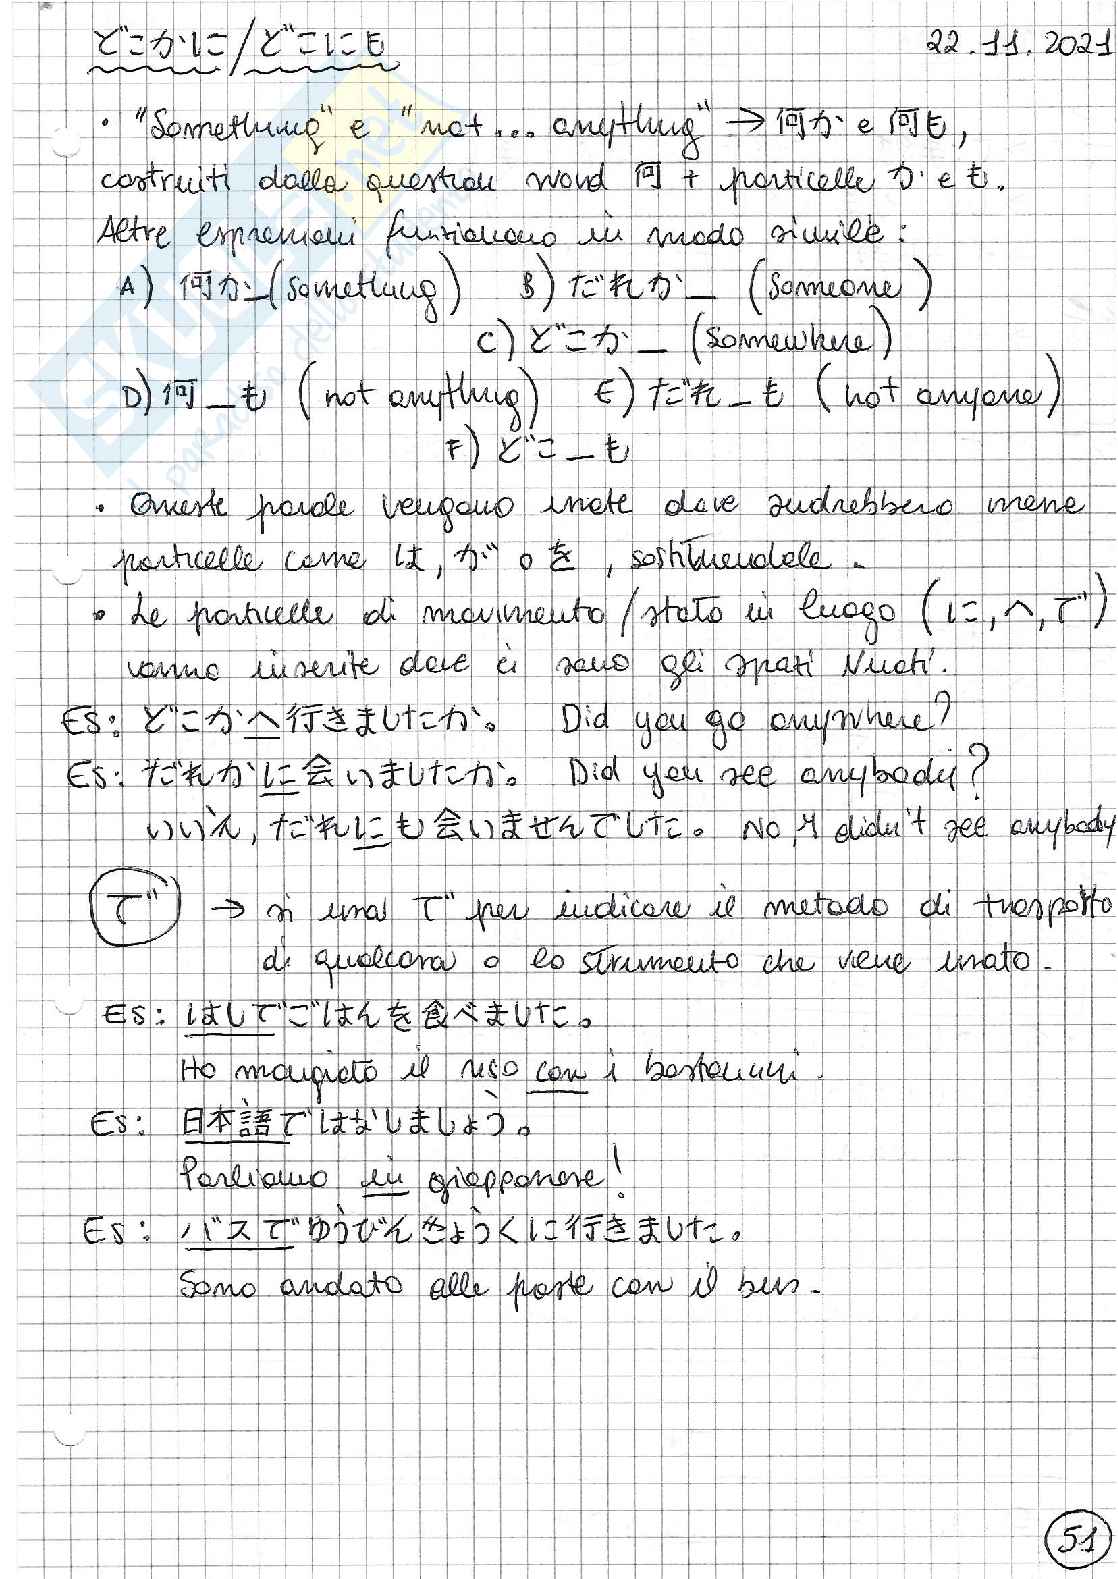 どこかに/どこにも 22.11.2021
• "Something" e "not... anything" → 何か e 何も,
costruiti dalla question word 何 + particelle か e も.
Altre espressioni funzionano in modo simile:
A) 何か_(something) B) だれか_ (someone)
C) どこか_ (somewhere)
D) 何_も (not anything) E) だれ_も (not anyone)
F) どこ_も
• Queste parole vengono usate dove andrebbero messe
particelle come は, が o を, sostituendole.
• Le particelle di movimento/stato in luogo (に,へ,で)
vanno inserite dove ci sono gli spazi vuoti.
ES: どこかへ行きましたか。 Did you go anywhere?
ES: だれかに会いましたか。 Did you see anybody?
いいえ, だれにも会いませんでした。 No, I didn't see anybody
で → si usa で per indicare il metodo di trasporto
di qualcosa o lo strumento che viene usato.
ES: はしでごはんを食べました。
Ho mangiato il riso con i bastoncini.
ES: 日本語ではなしましょう。
Parliamo in giapponese!
ES: バスでゆうびんきょうくに行きました。
Sono andato alle poste con il bus.
51